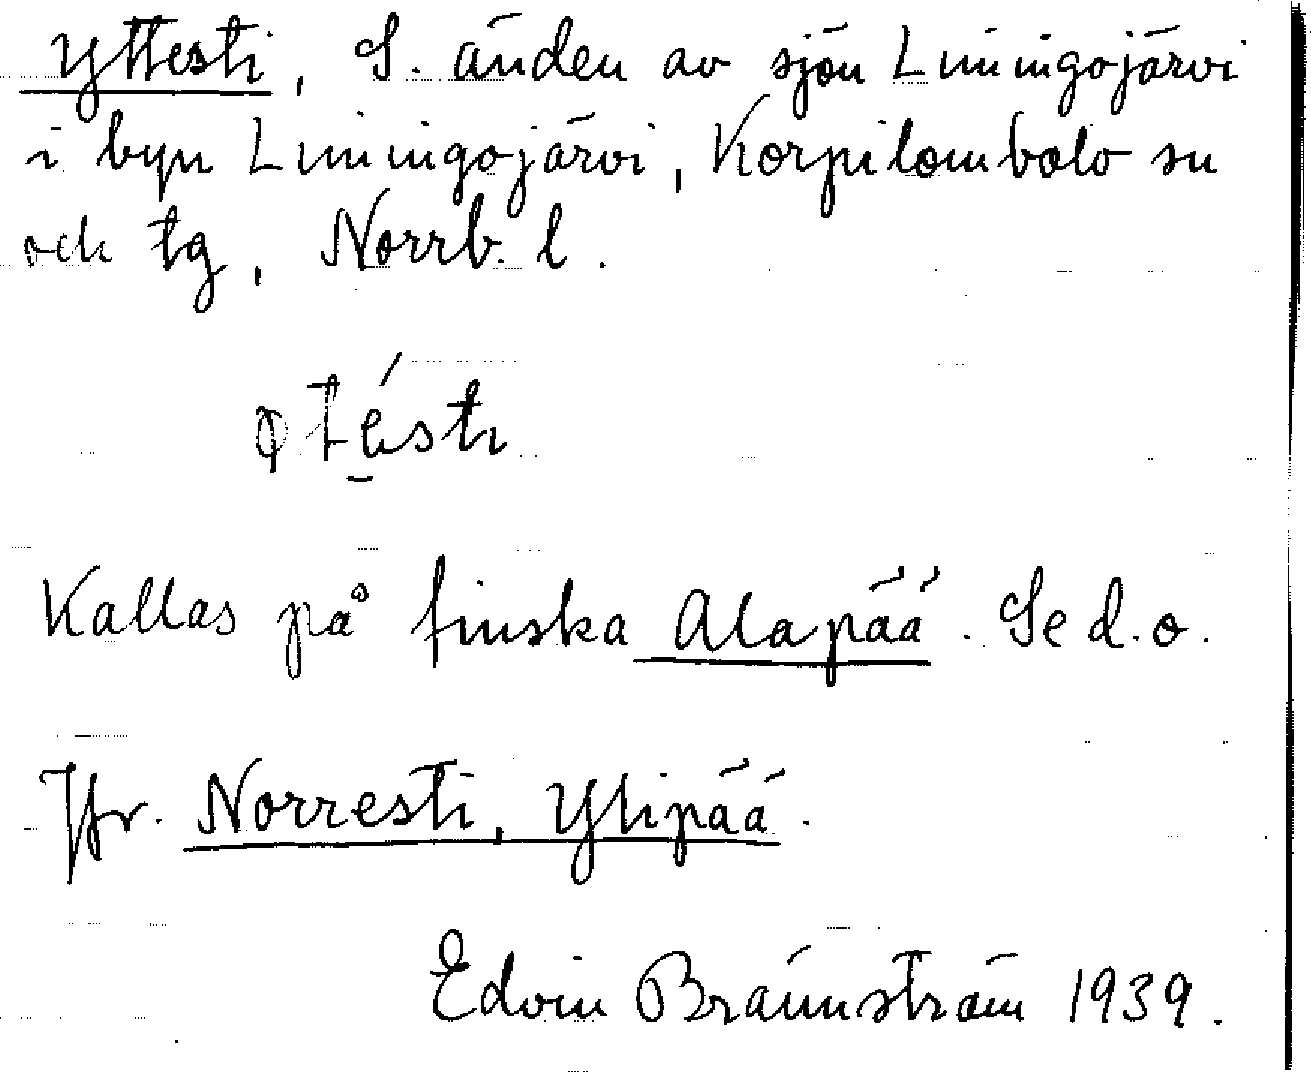 Yttesti, S. änden av sjön Liviningojärvi
i byn Liviningojärvi, Korpilombolo sn
och tg, Norrb. l.
Kallas på finska Alapää. Se d.o.
Jfr. Norresti, Ylipää.
Edvin Brännström 1939.